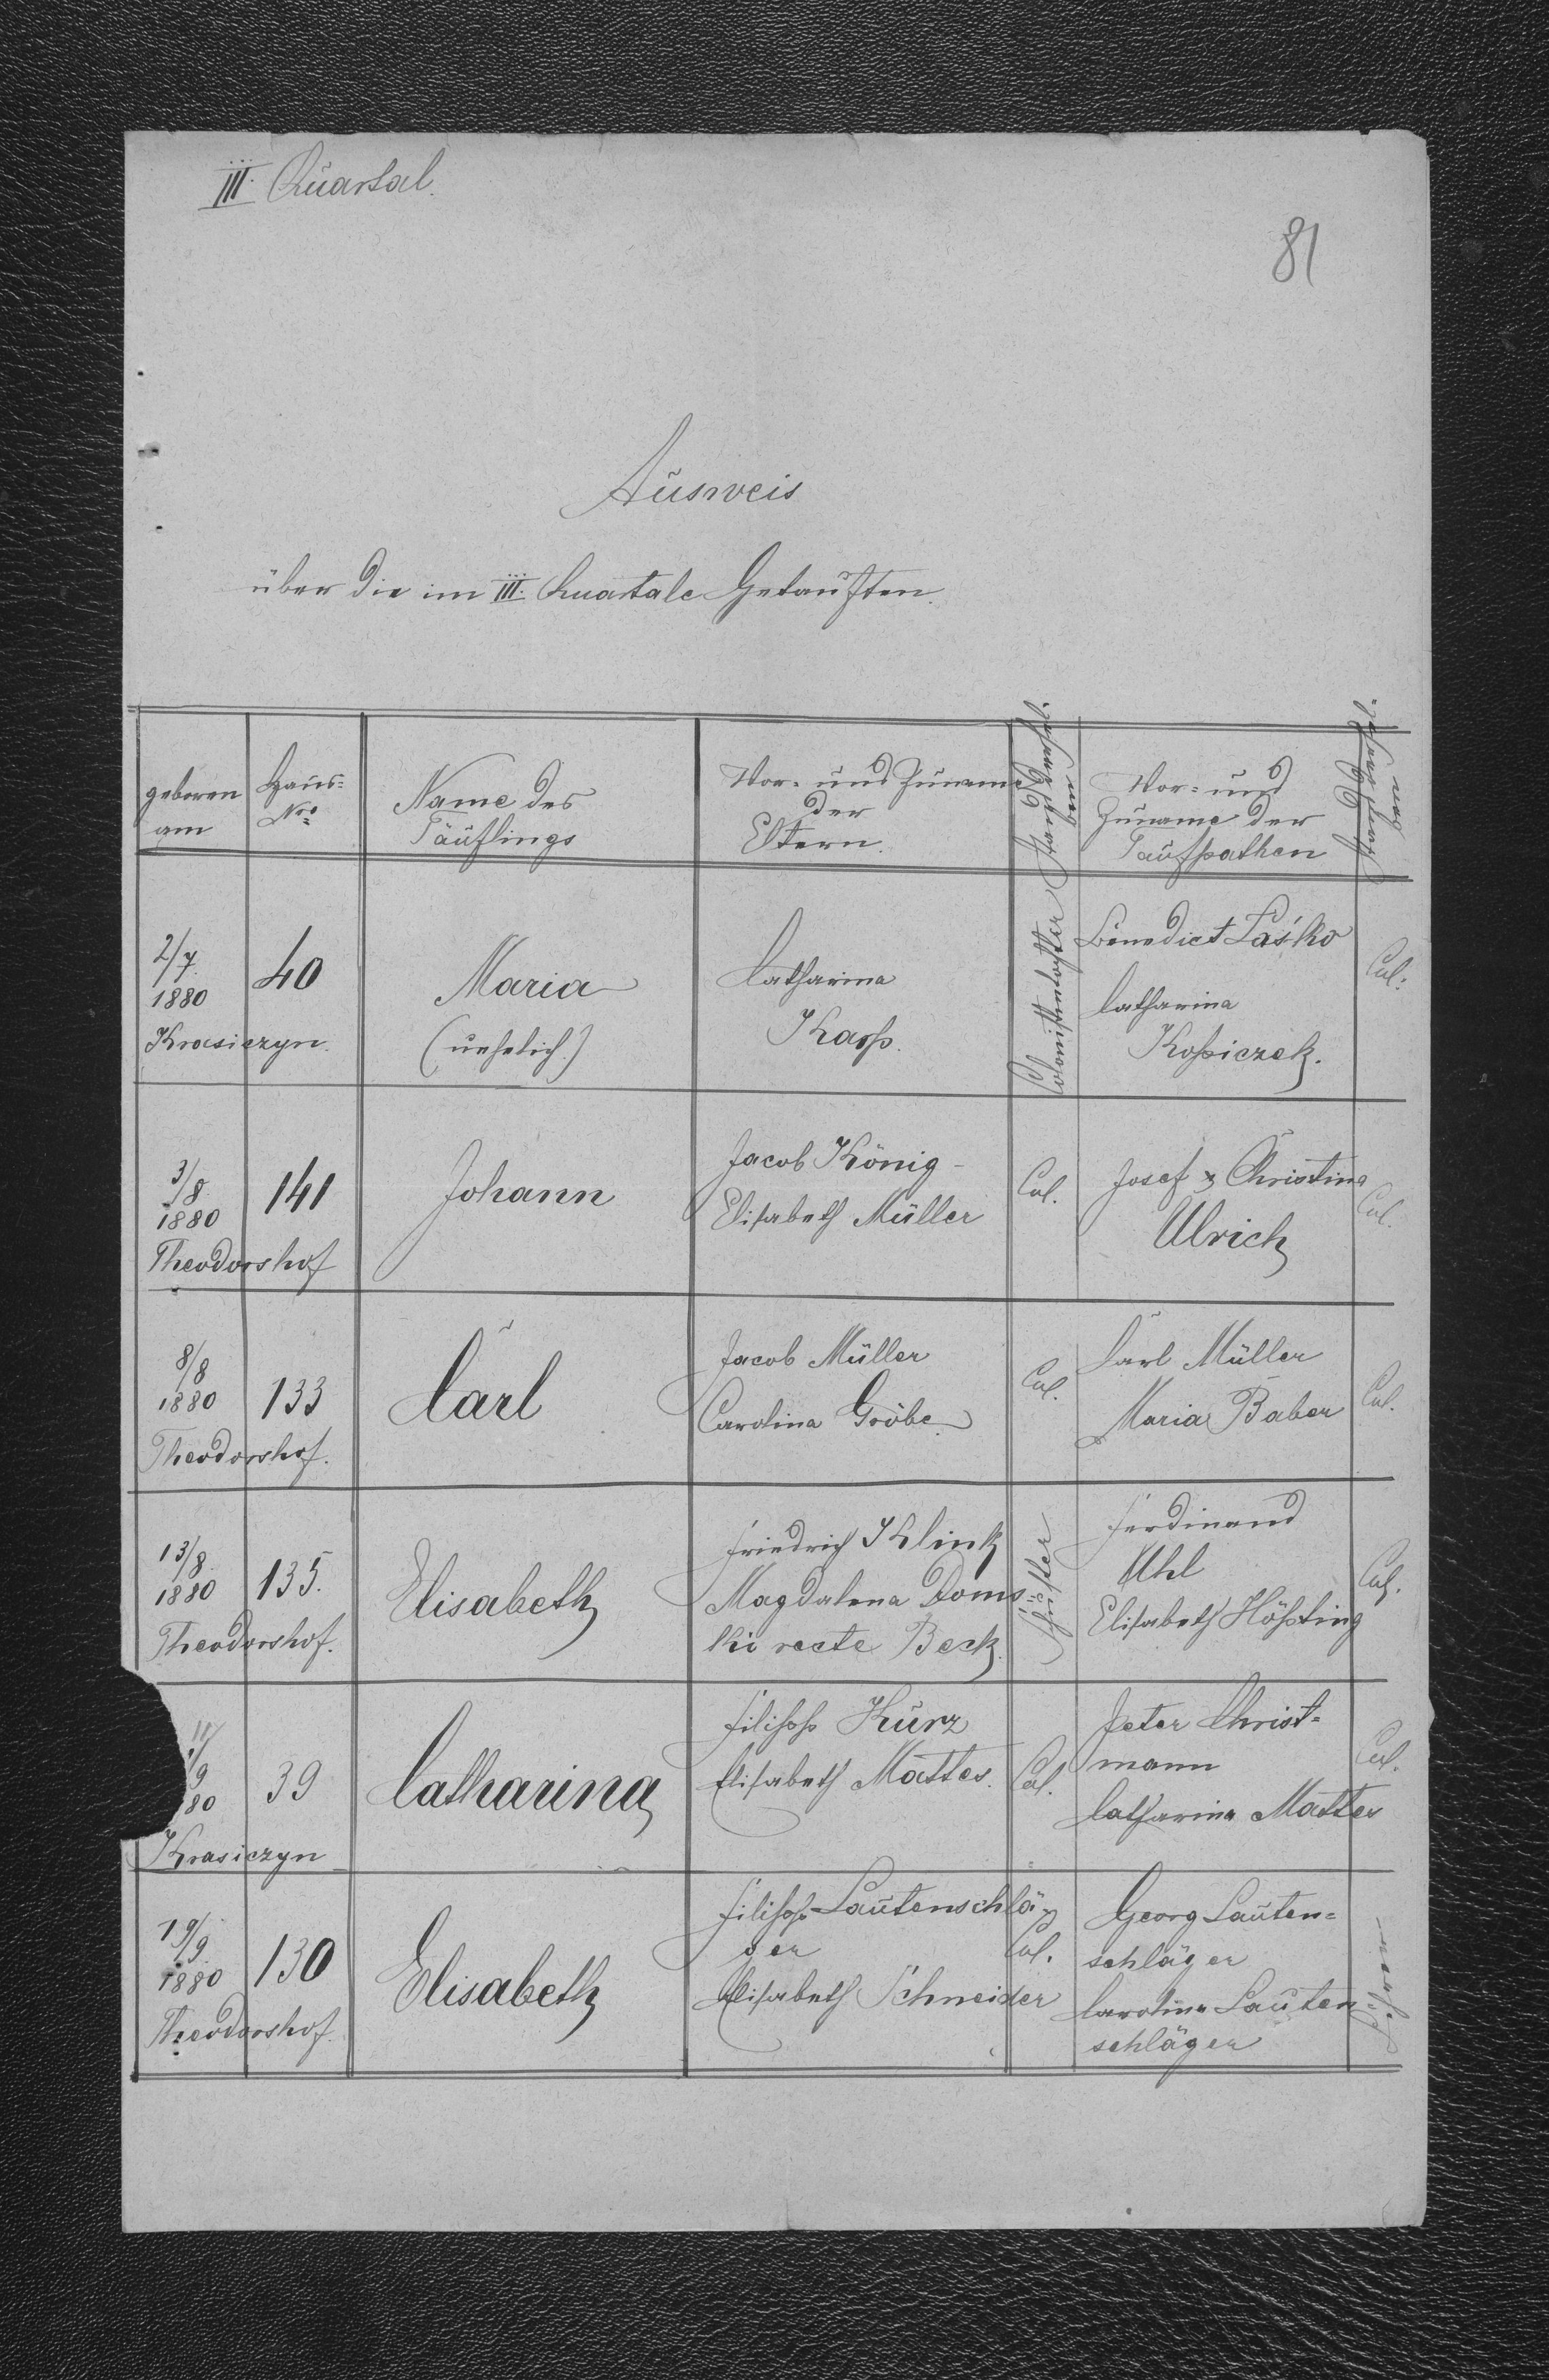 III. Quartal.
81
Ausweis
über die im III. Quartale Getauften.
geboren am
Haus- Nro
Name des Täuflings
Vor- und Zuname der Eltern.
Stand derselben
Vor- und Zuname der Taufpathen
Stand derselben
2/7. 1880
Krasiczyn.
40
Maria
(unehelich.)
Catharina
Karp.
Colonistentochter
Benedict Laśko
Catharina
Kopiczek.
Col:
3/8 1880
Theodorshof
141
Johann
Jacob König
Elisabeth Müller
Col.
Josef & Christina
Ulrich
Col.
8/8 1880
Theodorshof.
133
Carl
Jacob Müller
Carolina Gröbe
Col.
Carl Müller
Maria Baber
Col.
13/8. 1880
Theodorshof.
135.
Elisabeth
Friedrich Klink
Magdalena Doms-
ki recte Beck.
Schuster
Ferdinand
Uhl
Elisabeth Höpting
Col.
11/9 80
Krasiczyn
39
Catharina
Filipp Kurz
Elisabeth Mattes.
Col.
Peter Christ-
mann
Catharina Mattes
Col.
19/9. 1880
Theodorshof.
130
Elisabeth
Filipp Lautenschlä-
ger
Elisabeth Schneider
Col.
Georg Lauten-
schläger
Carolina Lauten
schläger